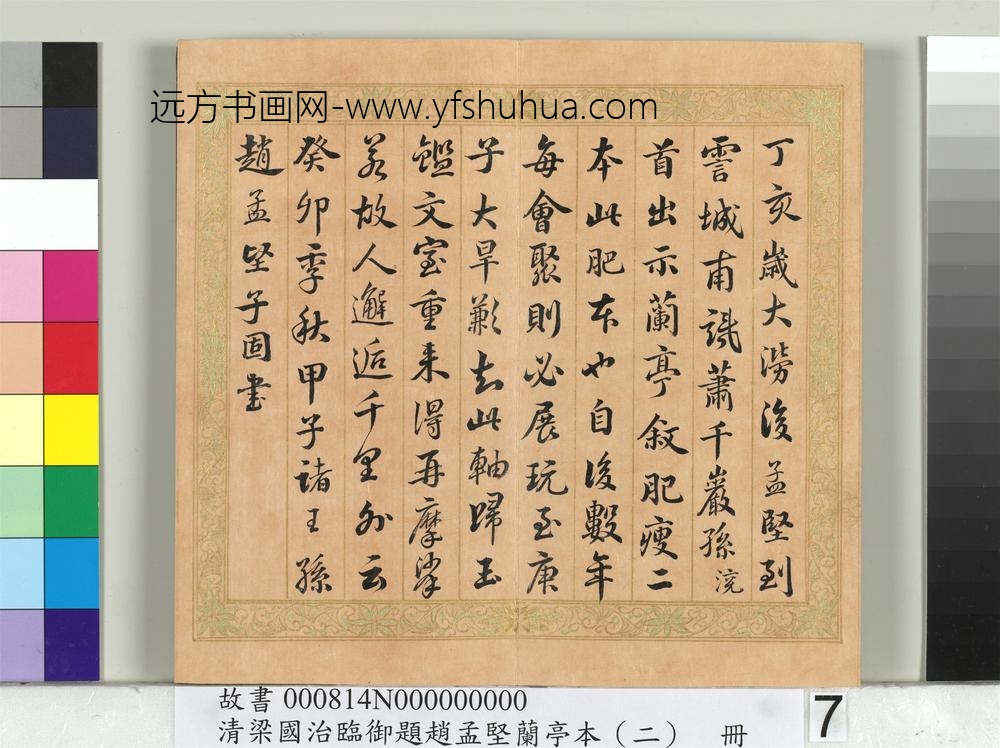 远方书画网-www.yfshuhua.com
丁亥歲大澇後孟堅到
霅城甫識蕭千巖孫沆
首出示蘭亭叙肥瘦二
本此肥本也自後數年
每會聚則必展玩至庚
子大旱歉去此軸歸玉
鑑文室重来得再摩挲
若故人邂逅千里外云
癸卯季秋甲子諸王孫
趙孟堅子固書
故書 000814N000000000
清梁國治臨御題趙孟堅蘭亭本（二） 冊
7